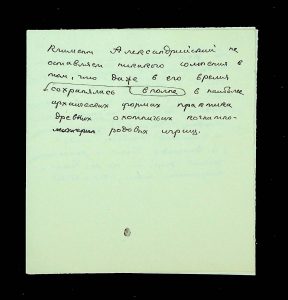 Климент Александрийский не
оставляет никакого сомнения в
том, что даже в его время
сохранялась вполне в наиболее
архаических формах практика
древних охотничьих
родовых игрищ.